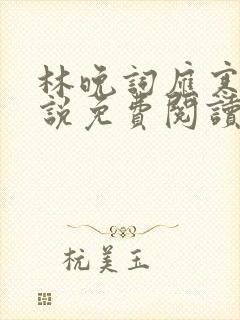 林晚詞雁寒
說免費閱讀
杭美玉